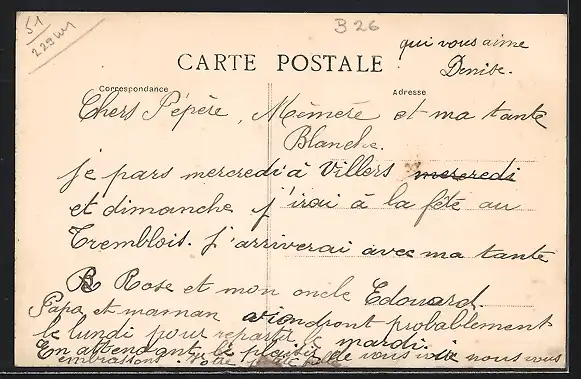 51
229 
B 26
qui vous aime
Denise.
CARTE POSTALE
Correspondance
Adresse
Chers Pépère, Mémère et ma tante
Blanche.
je pars mercredi à Villers mercredi
et dimanche j'irai à la fête au
Tremblois. j'arriverai avec ma tante
R Rose et mon oncle Edouard.
Papa et maman viendront probablement
le lundi pour repartir le mardi.
En attendant le plaisir de vous voir nous vous
embrassons. votre petite fille